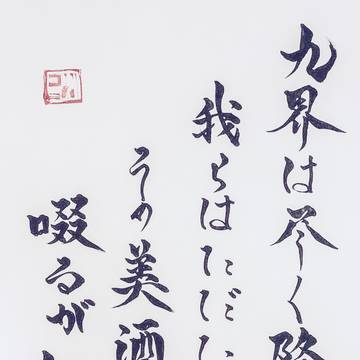 九界は尽く
我らはただ
その美酒
啜るが